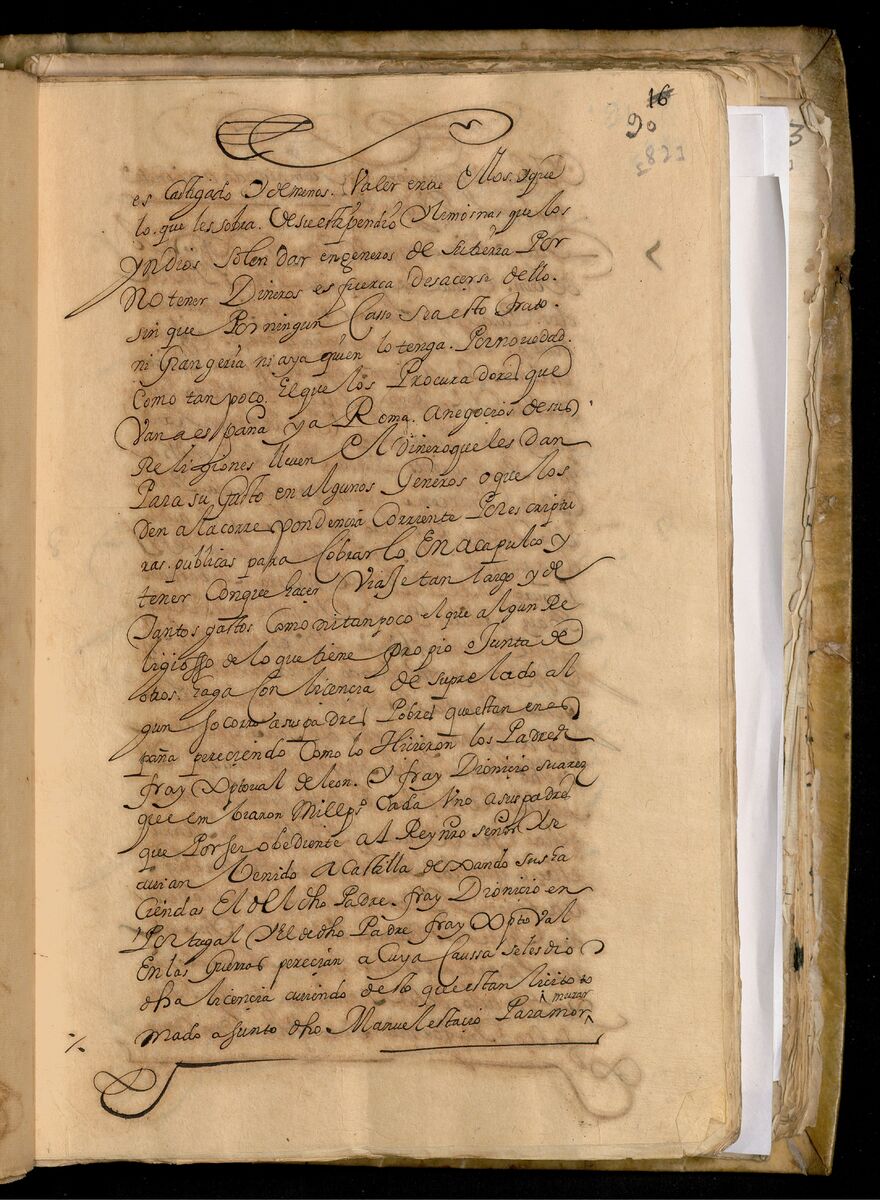 16
90
es castigado Y demenos. Valer entre Ellos. Y que
lo. que les sobra. de su estipendio Y limosnas que los
Yndios Suelen dar en generos de su tierra Por
No tener Dineros es fuerça desacerse dello.
sin que Por ningun Casso. sea esto trato.
ni Grangeria ni aya quien lo tenga. Por novedad.
Como tan poco. El que los Procuradores que
Van a españa y a Roma. a negocios de sus
Religiones lleven El dinero que les dan
Para su Gasto en algunos Generos o que los
den a la correspondencia Corriente Por escriptu
ras. publicas para Cobrarlo En acapulco y
tener Con que hacer Viaje tan largo y de
Tantos gastos Como ni tan poco el que algun Re
ligiosso de lo que tiene Propio o Junta de
otros. haga Con licencia de su prelado al
gun socorro a sus padres Pobres que estan en es
paña pereciendo Como lo Hicieron los Padres
fray Xptoval de leon. Y fray Dionicio suarez
que embiaron Mill ps Cada Uno a sus padres
que Por ser obediente al Rey nro señor Y se
avian Venido a Castilla dexando sus ha
ciendas El del dho Padre. fray Dionicio en
Portugal Y El de dho Padre fray Xptoval
En las Guerras perecian a Cuya Caussa se les dio
dha licencia aviendo de lo que es tan licito to
mado asunto dho Manuel estacio Para mor
murar